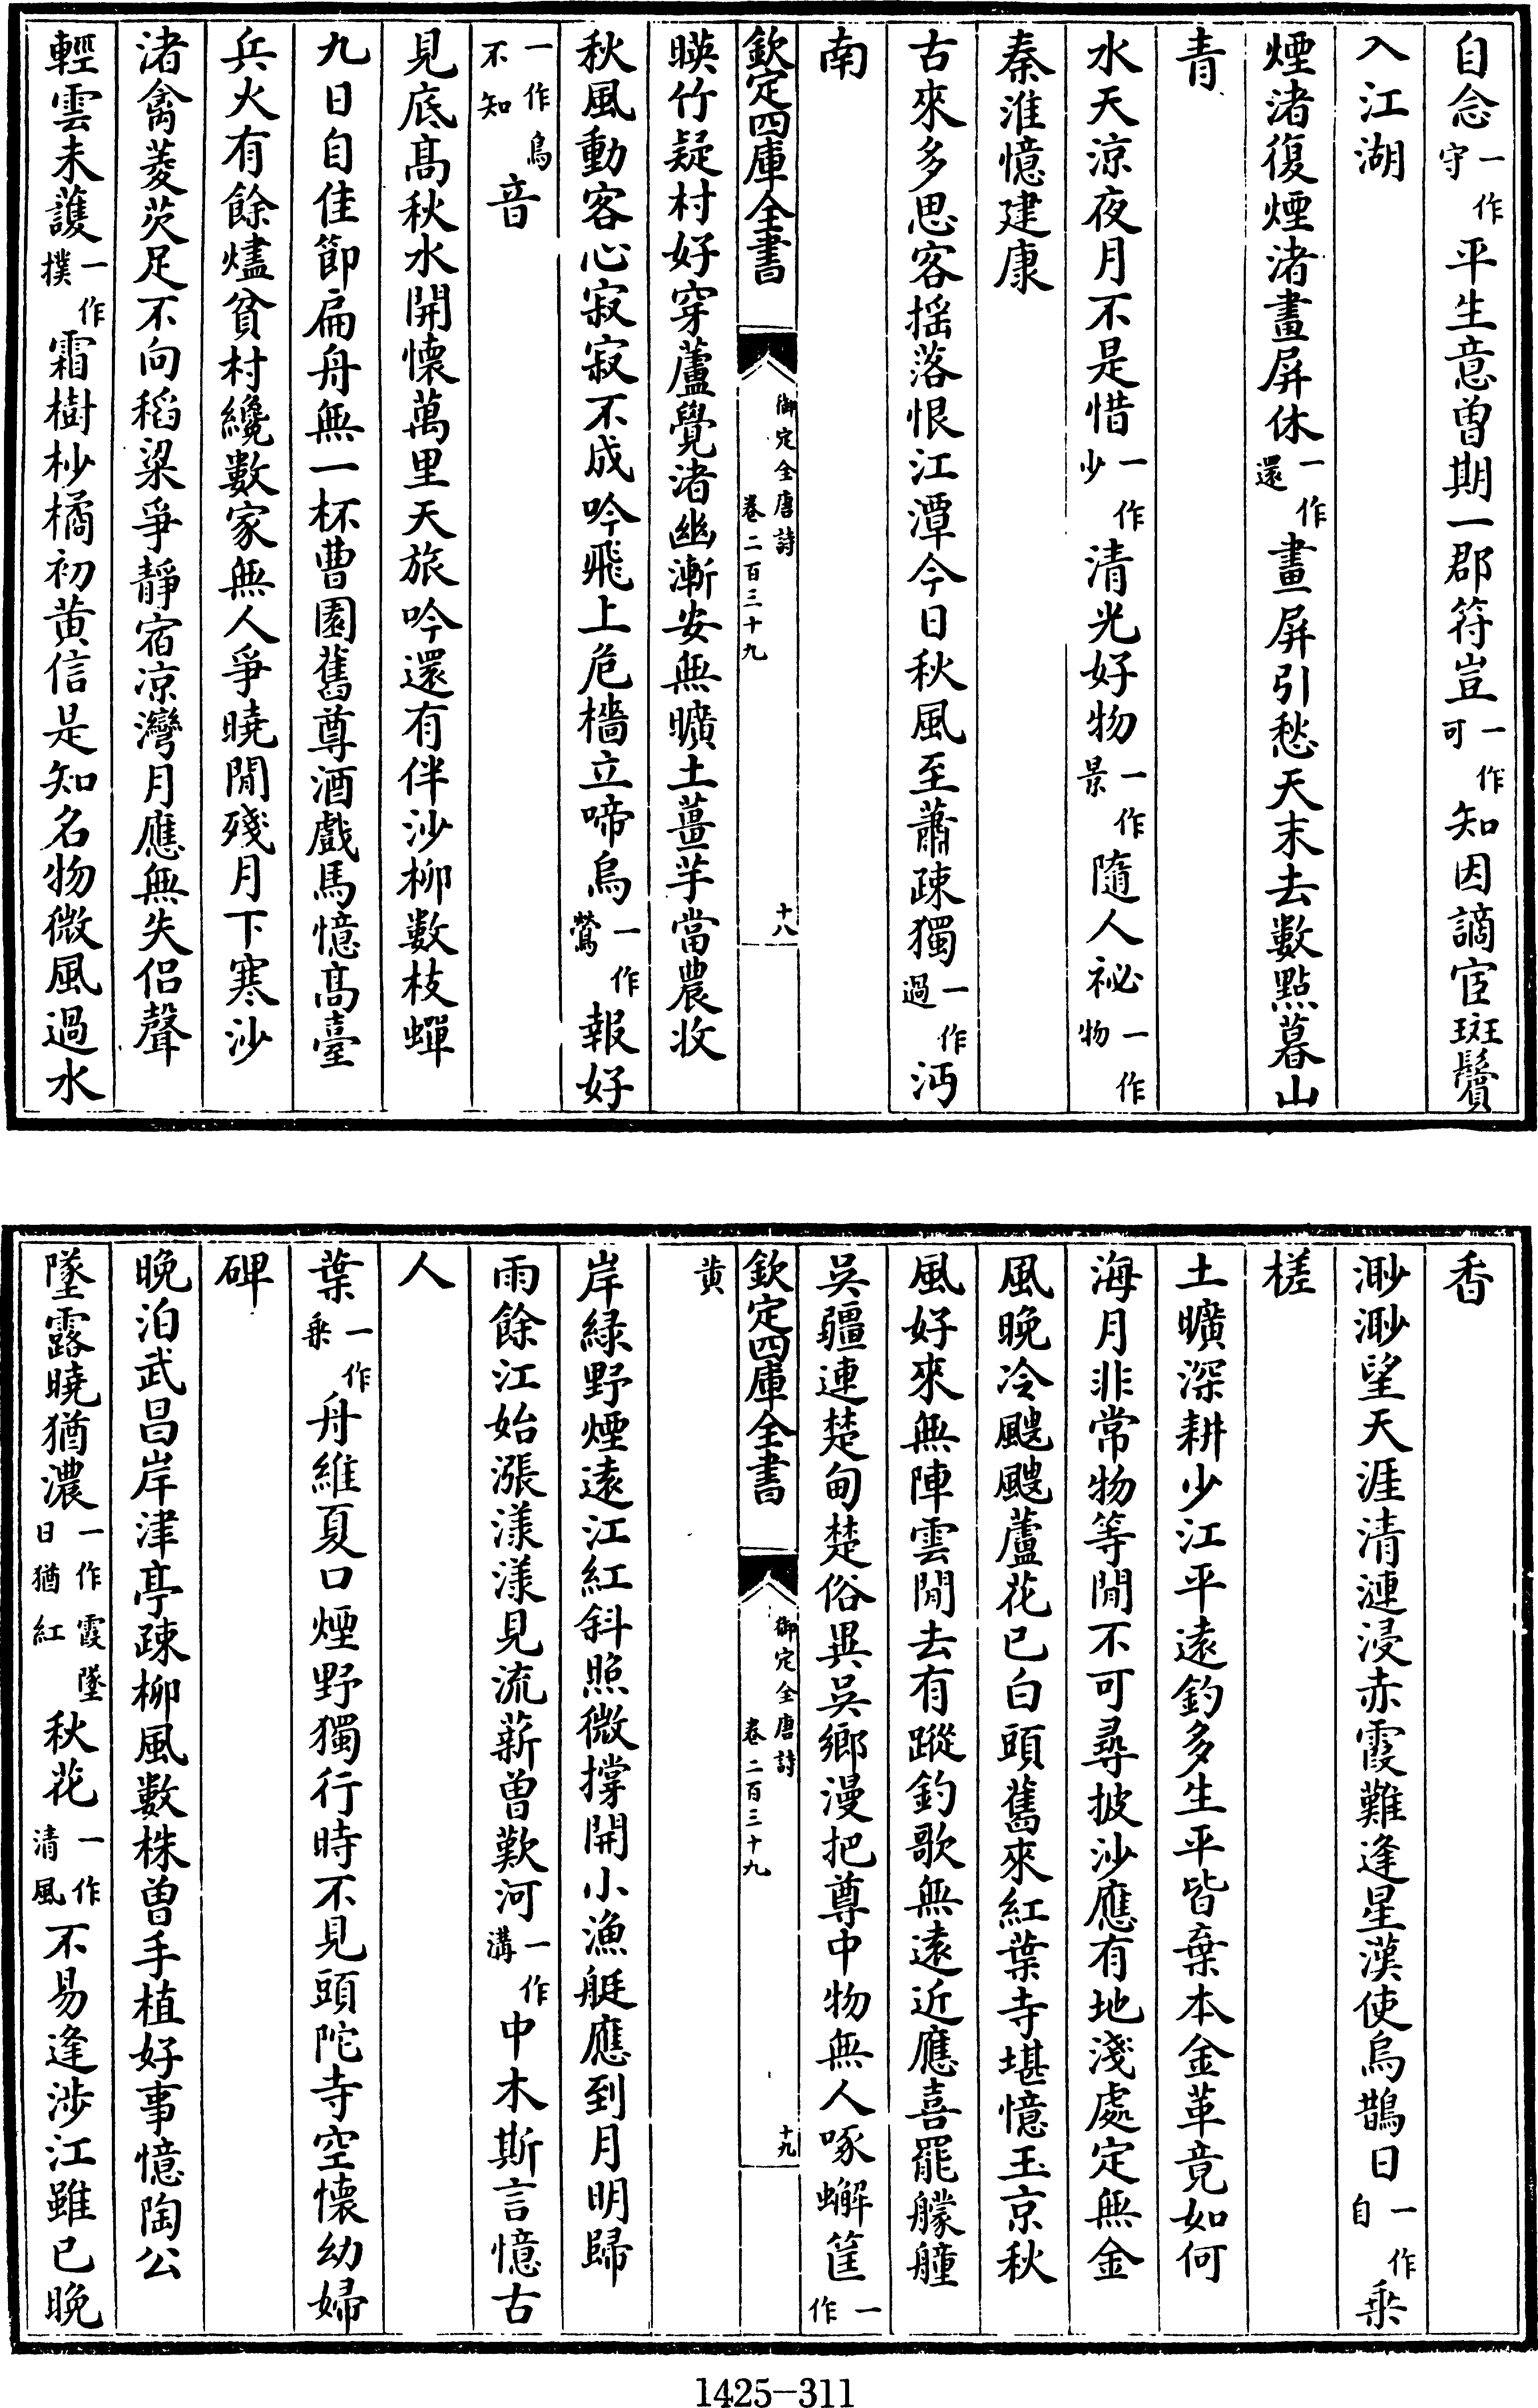 自念一作守平生意曽期一郡符豈一作可知因謫宦斑鬢
入江湖
煙渚復煙渚畫屏休一作還畫屏引愁天末去數點暮山
青
水天涼夜月不是惜一作少清光好物一作景隨人祕一作物
秦淮憶建康
古來多思客揺落恨江潭今日秋風至蕭疎獨一作過沔
南
欽定四庫全書 御定全唐詩卷二百三十九 十八
暎竹疑村好穿蘆覺渚幽漸安無曠土薑芋當農收
秋風動客心寂寂不成吟飛上危檣立啼烏一作鶯報好
一作鳥不知音
見底高秋水開懷萬里天旅吟還有伴沙柳數枝蟬
九日自佳節扁舟無一杯曹園舊尊酒戲馬憶高臺
兵火有餘燼貧村纔數家無人爭曉閒殘月下寒沙
渚禽菱芡足不向稻粱爭靜宿涼灣月應無失侣聲
輕雲未䕶一作撲霜樹杪橘初黄信是知名物微風過水
香
渺渺望天涯清漣浸赤霞難逢星漢使烏鵲日一作自乘
槎
土曠深耕少江平遠釣多生平皆棄本金革竟如何
海月非常物等閒不可尋披沙應有地淺處定無金
風晚冷颼颼蘆花已白頭舊來紅葉寺堪憶玉京秋
風好來無陣雲閒去有蹤釣歌無遠近應喜罷艨艟
吳疆連楚甸楚俗異吳鄉漫把尊中物無人啄蠏筐一作
欽定四庫全書 御定全唐詩卷二百三十九 十九
黄
岸緑野煙遠江紅斜照微撑開小漁艇應到月明歸
雨餘江始漲漾漾見流薪曽歎河一作溝中木斯言憶古
人
葉一作乘舟維夏口煙野獨行時不見頭陀寺空懷幼婦
碑
晩泊武昌岸津亭疎柳風數株曽手植好事憶陶公
墜露曉猶濃一作霞墜日猶紅秋花一作清風不易逢涉江雖已晩
1425-311